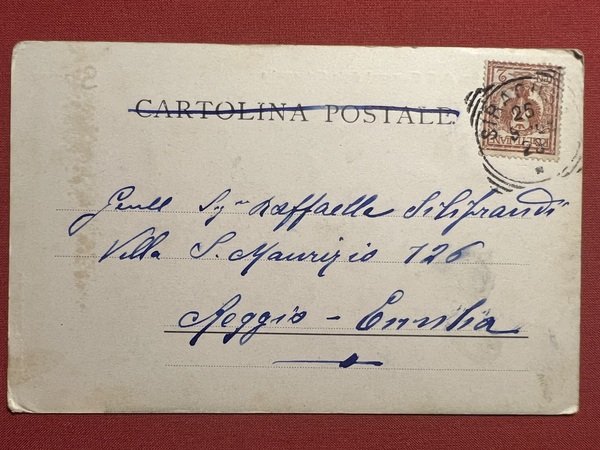 CARTOLINA POSTALE
25
Gent Sig.na Raffaella Silifrandi
Villa S. Maurizio 126
Reggio - Emilia